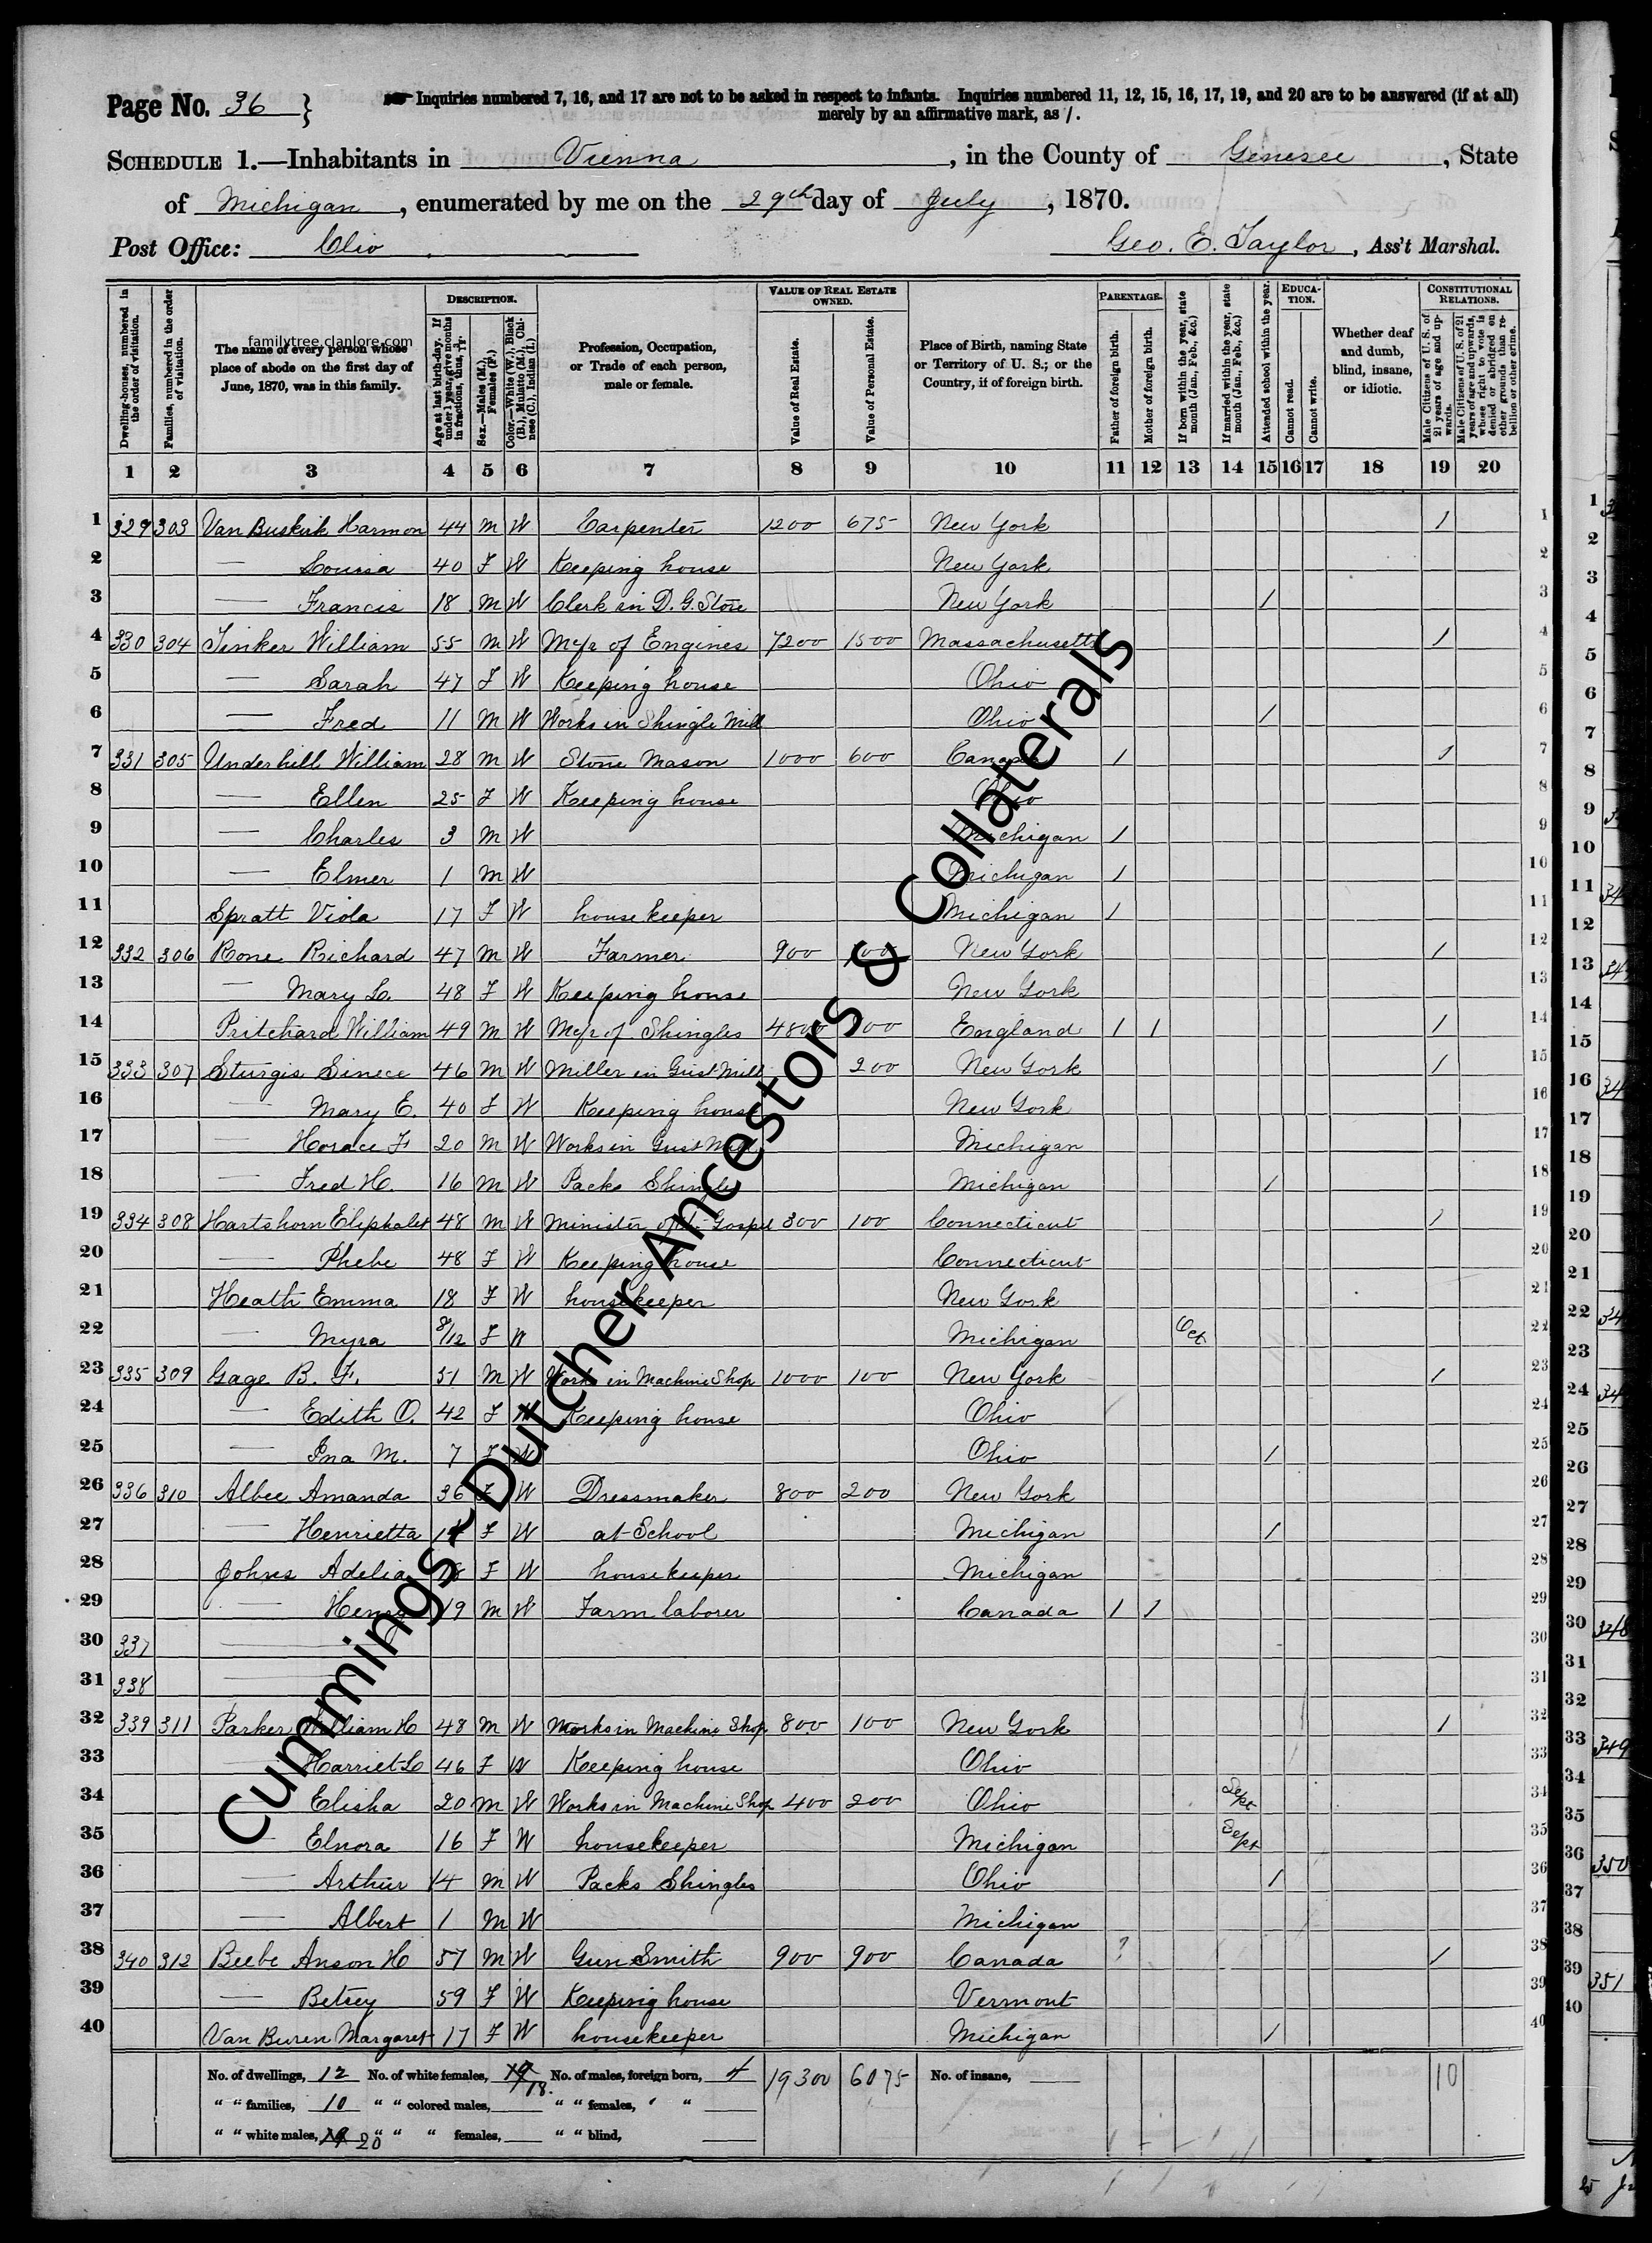 Page No. 36 } Inquiries numbered 7, 16, and 17 are not to be asked in respect to infants. Inquiries numbered 11, 12, 15, 16, 17, 19, and 20 are to be answered (if at all)
merely by an affirmative mark, as /.
SCHEDULE 1.—Inhabitants in Vienna, in the County of Genesee, State
of Michigan, enumerated by me on the 29th day of July, 1870.
Post Office: Clio Geo. E. Taylor, Ass't Marshal.
Dwelling-houses, numbered in the order of visitation.
Families, numbered in the order of visitation.
familytree.clanlore.com
The name of every person whose place of abode on the first day of June, 1870, was in this family.
DESCRIPTION.
Age at last birth-day. If under 1 year, give months in fractions, thus,
Sex.—Males (M.), Females (F.)
Color.—White (W.), Black (B.), Mulatto (M.), Chinese (C.), Indian (I.)
Profession, Occupation, or Trade of each person, male or female.
VALUE OF REAL ESTATE OWNED.
Value of Real Estate.
Value of Personal Estate.
Place of Birth, naming State or Territory of U. S.; or the Country, if of foreign birth.
PARENTAGE.
Father of foreign birth.
Mother of foreign birth.
If born within the year, state month (Jan., Feb., &c.)
If married within the year, state month (Jan., Feb., &c.)
Attended school within the year.
EDUCATION.
Cannot read.
Cannot write.
Whether deaf and dumb, blind, insane, or idiotic.
CONSTITUTIONAL RELATIONS.
Male Citizens of U. S. of 21 years of age and upwards.
Male Citizens of U. S. of 21 years of age and upwards, whose right to vote is denied or abridged on other grounds than rebellion or other crime.
1 2 3 4 5 6 7 8 9 10 11 12 13 14 15 16 17 18 19 20
1 329 303 Van Buskirk Harmon 44 M W Carpenter 1200 675 New York / 1
2 — Louisa 40 F W Keeping house New York 2
3 — Francis 18 M W Clerk in D. G. Store New York / 3
4 330 304 Tinker William 55 M W Mfr of Engines 7200 1500 Massachusetts / 4
5 — Sarah 47 F W Keeping house Ohio 5
6 — Fred 11 M W Works in Shingle Mill Ohio / 6
7 331 305 Underhill William 28 M W Stone Mason 1000 600 Canada / / 7
8 — Ellen 25 F W Keeping house Ohio 8
9 — Charles 3 M W Michigan / 9
10 — Elmer 1 M W Michigan / 10
11 Spratt Viola 17 F W housekeeper Michigan / 11
12 332 306 Rone Richard 47 M W Farmer 900 New York / 12
13 — Mary L. 48 F W Keeping house New York 13
14 Pritchard William 49 M W Mfr of Shingles 4800 England / / / 14
15 333 307 Sturgis 46 M W Miller in Grist Mill 200 New York / 15
16 — Mary E. 40 F W Keeping house New York 16
17 — Horace F 20 M W Works in Grist Mill Michigan 17
18 — Fred H. 16 M W Packs Shingles Michigan / 18
19 334 308 Hartshorn Eliphalet 48 M W Minister of t. Gospel 300 100 Connecticut / 19
20 — Phebe 48 F W Keeping house Connecticut 20
21 Heath Emma 18 F W housekeeper New York 21
22 — Myra 8/12 F W Michigan Oct. 22
23 335 309 Gage B. F. 51 M W Works in Machine Shop 1000 100 New York / 23
24 — Edith O. 42 F W Keeping house Ohio 24
25 — Ina M. 7 F W Ohio / 25
26 336 310 Albee Amanda 36 F W Dressmaker 800 200 New York 26
27 — Henrietta 14 F W at School Michigan / 27
28 Johns Adelia 18 F W housekeeper Michigan 28
29 — Henry 19 M W Farm laborer Canada / / 29
30 337 30
31 338 31
32 339 311 Parker William H 48 M W Works in Machine Shop 800 100 New York / 32
33 — Harriet L 46 F W Keeping house Ohio 33
34 — Elisha 20 M W Works in Machine Shop 400 200 Ohio Sept 34
35 — Elnora 16 F W housekeeper Michigan Sept 35
36 — Arthur 14 M W Packs Shingles Ohio / 36
37 — Albert 1 M W Michigan 37
38 340 312 Beebe Anson H 57 M W Gun Smith 900 900 Canada ? / 38
39 — Betsey 59 F W Keeping house Vermont 39
40 Van Buren Margaret 17 F W housekeeper Michigan / 40
No. of dwellings, 12 No. of white females, 18. No. of males, foreign born, 4 19300 6075 No. of insane, 10
" " families, 10 " " colored males, " " females, " "
" " white males, 20 " " " females, " " blind,
Cummings~Dutcher Ancestors & Collaterals